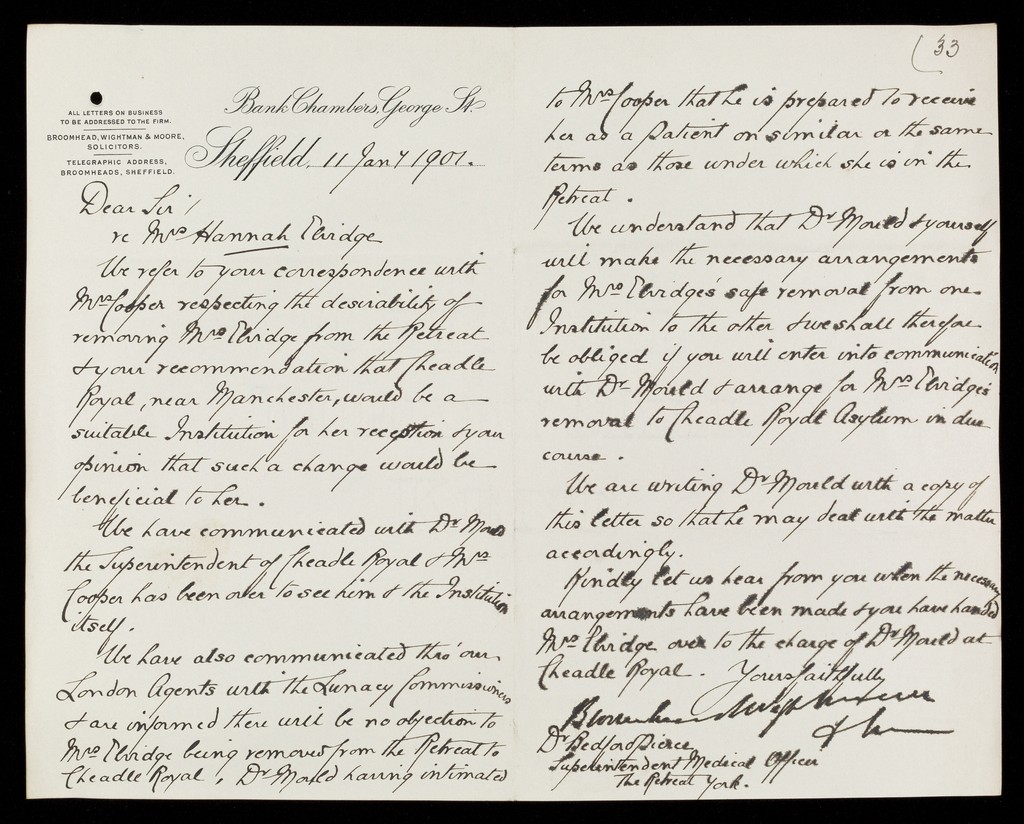 (33
ALL LETTERS ON BUSINESS
TO BE ADDRESSED TO THE FIRM.
BROOMHEAD, WIGHTMAN & MOORE,
SOLICITORS.
TELEGRAPHIC ADDRESS,
BROOMHEADS, SHEFFIELD.
Bank Chambers, George St.
Sheffield, 11 Jany 1901.
Dear Sir/
re Mrs Hannah Elvidge
We refer to your correspondence with
Mrs Cooper respecting the desirability of
removing Mrs Elvidge from the Retreat
& your recommendation that Cheadle
Royal, near Manchester, would be a
suitable Institution for her reception & your
opinion that such a change would be
beneficial to her.
We have communicated with Dr Mould
the Superintendent of Cheadle Royal & Mrs
Cooper has been over to see him & the Institution
itself.
We have also communicated thro' our
London Agents with the Lunacy Commissioners
& are informed there will be no objection to
Mrs Elvidge being removed from the Retreat to
Cheadle Royal, Dr Mould having intimated
to Mrs Cooper that he is prepared to receive
her as a patient on similar or the same
terms as those under which she is in the
Retreat.
We understand that Dr Mould & yourself
will make the necessary arrangements
for Mrs Elvidge's safe removal from one
Institution to the other & we shall therefore
be obliged if you will enter into communication
with Dr Mould & arrange for Mrs Elvidge's
removal to Cheadle Royal Asylum in due
course.
We are writing Dr Mould with a copy of
this letter so that he may deal with the matter
accordingly.
Kindly let us hear from you when the necessary
arrangements have been made & you have handed
Mrs Elvidge over to the charge of Dr Mould at
Cheadle Royal. Yours faithfully
Broomhead Wightman
& Moore
Dr Bedford Pierce
Superintendent Medical Officer
The Retreat York.